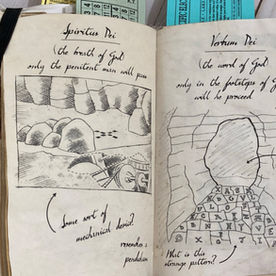 Spiritus Dei
(the breath of God)
only the penitent man will pass
Some sort of
mechanical device?
pendulum
Verbum Dei
(the word of God)
only in the footsteps of G
will he proceed
What is this
strange pattern?